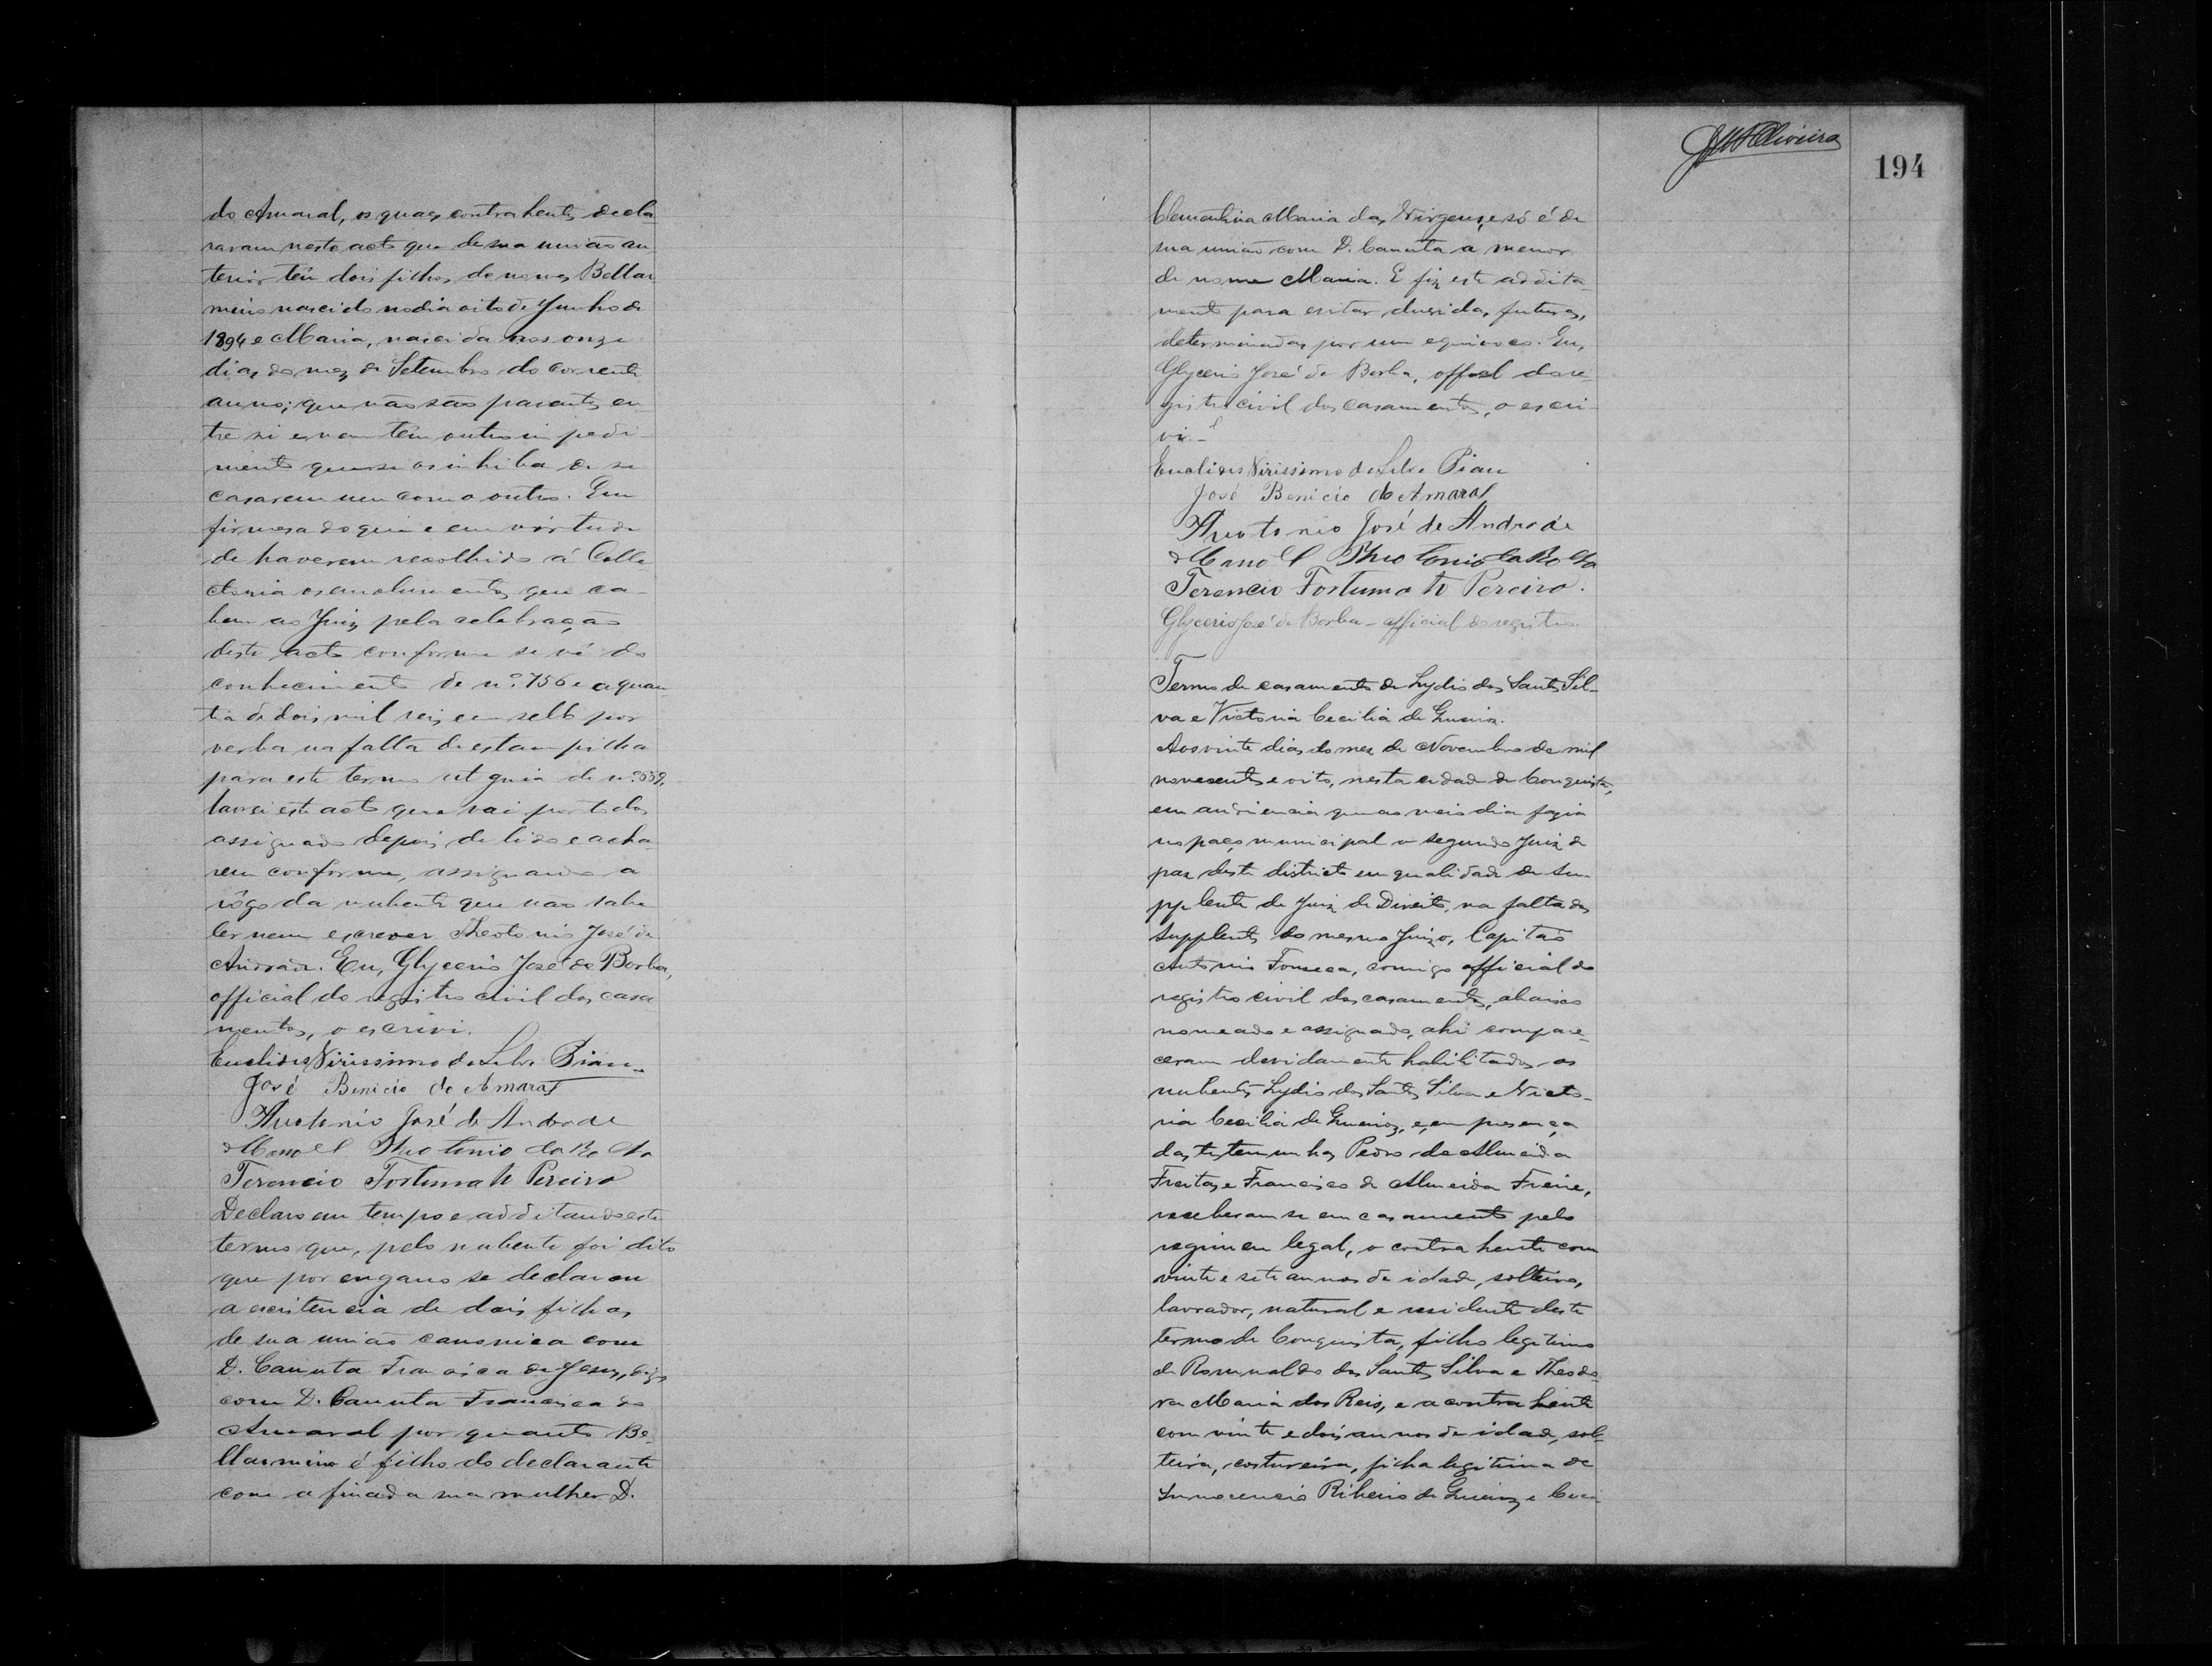 do Amaral, os quaes contrahentes decla
raram neste acto que de sua união an
terior têm dois filhos, de nomes Bellar
mino nascido no dia oito de Junho de
1894 e Maria, nascida aos onze
dias do mez de Setembro do corrente
anno; que não são parentes en
tre si e nem têm outro impedi-
mento que os inhiba de se
casarem um com o outro. Em
firmesa do que e em virtude
de haverem recolhido á Colle
ctoria os emolumentos que ca-
bem ao Juiz pela celebração
deste acto conforme se vê do
conhecimento de nº 156 e a quan
tia de dois mil reis em sello por
verba na falta de estampilha
para este termo ut guia de nº
lavrei este acto que vai por todos
assignado depois de lido e acha-
rem conforme, assignando a
rôgo da nubente que não sabe
ler nem escrever Theotonio José de
Andrade. Eu, Glycerio José de Borba,
official do registro civil dos casa
mentos, o escrivi.
Euclides Virissimo da Silva Pian
José Benicio do Amaral
Theotonio José de Andrade
Manoel Theotonio da Rocha
Terencio Fortunato Pereira
Declaro em tempo e additando este
termo que, pelo nubente foi dito
que por engano se declarou
a existencia de dois filhos
de sua união canonica com
D. Canuta Francisca de Jesus, digo
com D. Canuta Francisca do
Amaral por quanto Be-
llarmino é filho do declarante
com a finada sua mulher D.
194
Clementina Maria das Virgens, e só é de
sua união com D. Canuta a menor
de nome Maria. E fiz este addita-
mento para evitar duvidas futuras,
determinadas por um equivoco. Eu,
Glycerio José de Borba, offcal do re-
gistro civil dos casamentos, o escri-
vi.
Euclides Virissimo da Silva Pian
José Benicio do Amaral
Theotonio José de Andrade
Manoel Theotonio da Rocha
Terencio Fortunato Pereira.
Glycerio José de Borba - official do registro.
Termo de casamento de Lydio dos Santos Sil-
va e Victoria Cecilia de Queiroz.
Aos vinte dias do mez de Novembro de mil
novecentos e oito, nesta cidade de Conquista,
em audiencia que ao meio dia fazia
no paço municipal o segundo Juiz de
paz deste districto em qualidade de su-
pplente de Juiz de Direito, na falta dos
supplentes do mesmo Juizo, Capitão
Antonio Fonseca, comigo official do
registro civil dos casamentos, abaixo
nomeado e assignado, ahi compare-
ceram devidamente habilitados os
nubentes Lydio dos Santos Silva e Victo-
ria Cecilia de Queiroz, e, em presença
das testemunhas Pedro de Almeida
Freitas e Francisco de Almeida Freire,
receberam-se em casamento pelo
regimen legal, o contrahente com
vinte e sete annos de idade, solteiro,
lavrador, natural e residente deste
termo de Conquista, filho legitimo
de Romualdo dos Santos Silva e Theodo-
ra Maria dos Reis, e a contrahente
com vinte e dois annos de idade, sol-
teira, costureira, filha legitima de
Innocencio Ribeiro de Queiroz e Ceci-